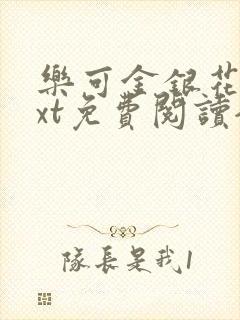 樂可金銀花
xt免費閱讀
隊長是我1